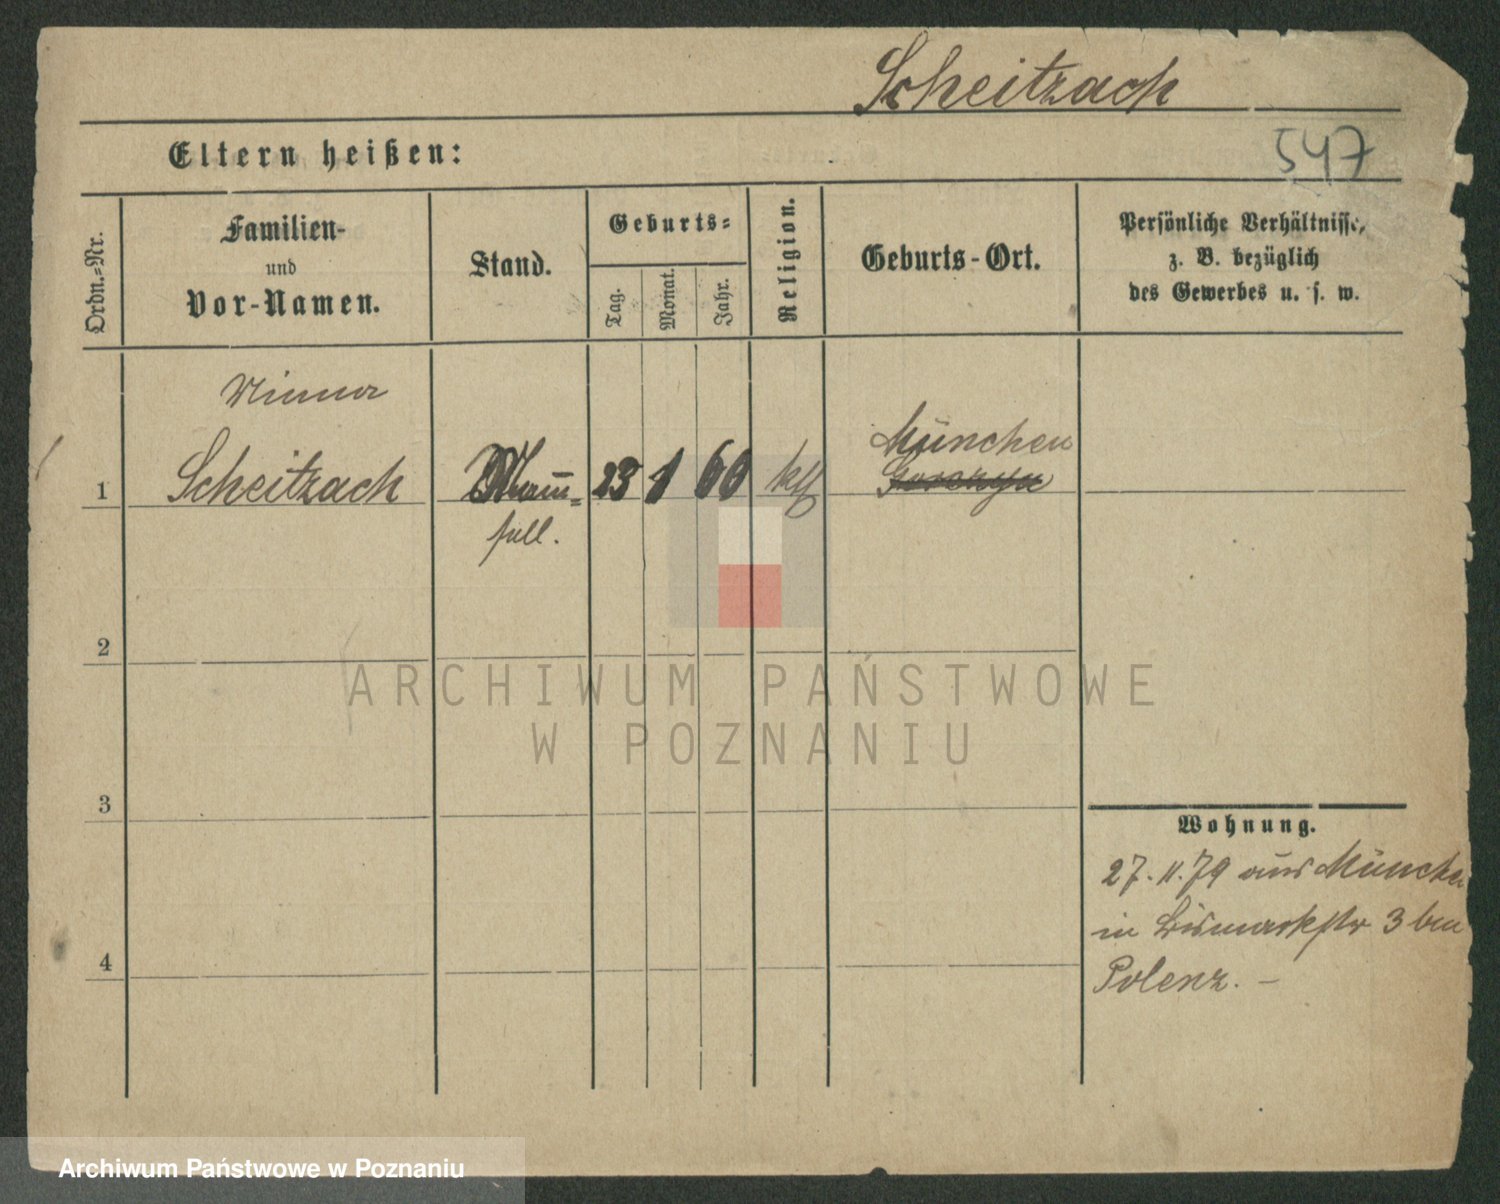 Scheitzach
547
Eltern heißen:
Ordn.=Nr.
Familien-
und
Vor-Namen.
Stand.
Geburts=
Tag.
Monat.
Jahr.
Religion.
Geburts-Ort.
Persönliche Verhältnisse,
z. B. bezüglich
des Gewerbes u. s. w.
Minna
1
Scheitzach
23
1
60
München
2
ARCHIWUM PAŃSTWOWE
W POZNANIU
3
Wohnung.
27. 11. 79 aus München
in Bismarckstr 3 bei
4
Polenz. –
Archiwum Państwowe w Poznaniu